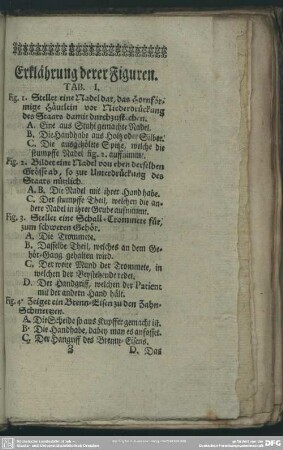 Erklährung derer Figuren.
TAB. I.
Fig. 1. Stellet eine Nadel dar, das Hornför-
mige Häutlein vor Niederdrückung
des Staars damit durchzustechen.
A. Eine aus Stahl gemachte Nadel.
B. Die Handhabe aus Holtz oder Silber.
C. Die ausgehölte Spitze, welche die
stumpffe Nadel fig. 2. auffnimmt.
Fig. 2. Bildet eine Nadel von eben derselben
Grösse ab, so zur Unterdrückung des
Staars nützlich.
A. B. Die Nadel mit ihrer Handhabe.
C. Der stumpffe Theil, welchen die an-
dere Nadel in ihrer Grube aufnimmt.
Fig. 3. Stellet eine Schall-Trommete für,
zum schweren Gehör.
A. Die Trommete.
B. Dasselbe Theil, welches an dem Ge-
hör-Gang gehalten wird.
C. Der weite Mund der Trommete, in
welchen der Beystehende redet.
D. Der Handgriff, welchen der Pacient
mit der andern Hand hält.
Fig. 4. Zeiget ein Brenn-Eisen zu den Zahn-
Schmertzen.
A. Die Scheide so aus Kupffer gemacht ist.
B. Die Handhabe, dabey man es anfasset.
C. Der Hangriff des Brenn-Eisens.
D. Das
DFG